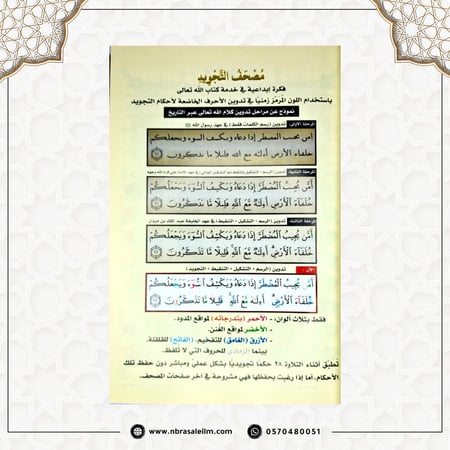 مُصْحَفُ التَّجْوِيدِ
فكرة إبداعية في خدمة كتاب الله تعالى
باستخدام اللون المرمّز زمنيًا في تدوين الأحرف الخاضعة لأحكام التجويد
نموذج عن مراحل تدوين كلام الله تعالى عبر التاريخ
المرحلة الأولى: تدوين (رسم الكلمات فقط) في عهد رسول الله ﷺ
امن يجيب المضطر إذا دعاه ويكشف السوء ويجعلكم
خلفاء الأرض أءله مع الله قليلا ما تذكرون
أَمَّن يُجِيبُ الْمُضْطَرَّ إِذَا دَعَاهُ وَيَكْشِفُ السُّوءَ وَيَجْعَلُكُمْ
خُلَفَاءَ الْأَرْضِ أَءِلَٰهٌ مَّعَ اللَّهِ قَلِيلًا مَّا تَذَكَّرُونَ
المرحلة الثالثة: تدوين (الرسم - التشكيل - التنقيط) في عهد الخليفة عبد الملك بن مروان
أَمَّن يُجِيبُ الْمُضْطَرَّ إِذَا دَعَاهُ وَيَكْشِفُ السُّوءَ وَيَجْعَلُكُمْ
خُلَفَاءَ الْأَرْضِ أَءِلَٰهٌ مَّعَ اللَّهِ قَلِيلًا مَّا تَذَكَّرُونَ
الآن: تدوين (الرسم - التشكيل - التنقيط - التجويد)
أَمَّن يُجِيبُ الْمُضْطَرَّ إِذَا دَعَاهُ وَيَكْشِفُ السُّوءَ وَيَجْعَلُكُمْ
خُلَفَاءَ الْأَرْضِ أَءِلَٰهٌ مَّعَ اللَّهِ قَلِيلًا مَّا تَذَكَّرُونَ
فقط بثلاث ألوان: - الأحمر (بتدرجاته) لمواقع المدود.
- الأخضر لمواقع الغنن.
- الأزرق (الغامق) للتفخيم، (الفاتح) للقلقلة.
بينما الرمادي للحروف التي لا تلفظ.
تُطبق أثناء التلاوة ٢٨ حكمًا تجويديًا بشكل عملي ومباشر دون حفظ تلك
الأحكام، أما إذا رغبت بحفظها فهي مشروحة في آخر صفحات المصحف.
www.nbrasalelm.com
0570480051